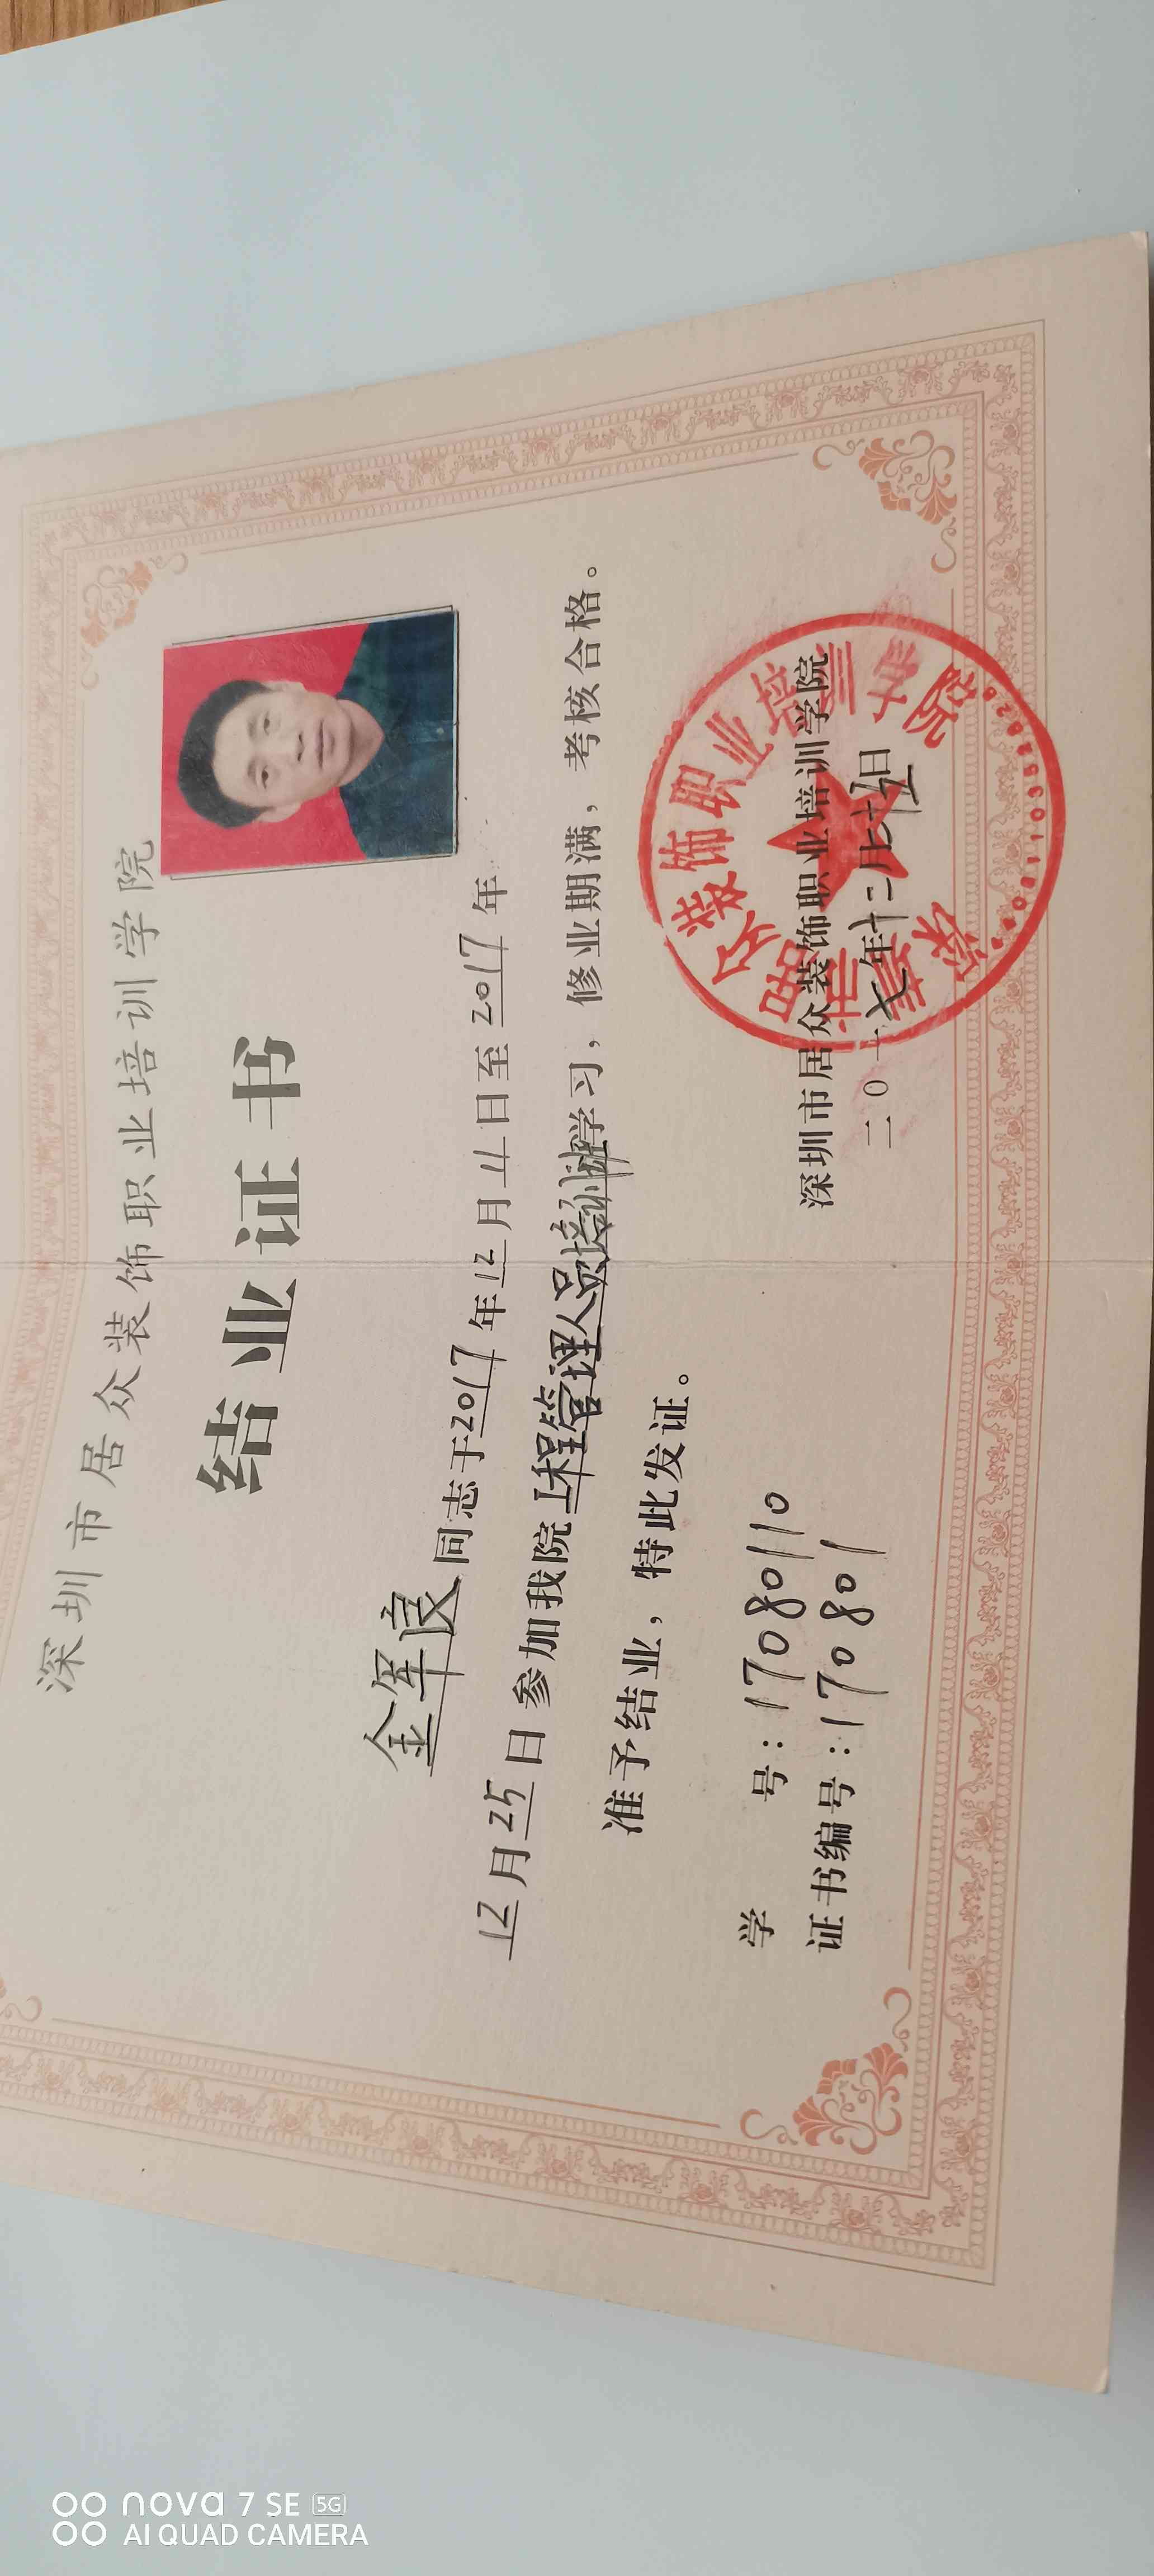 深圳市居众装饰职业培训学院
结业证书
金军良同志于2017年12月11日至2017年
12月25日参加我院工程管理人员培训班学习，修业期满，考核合格。
准予结业，特此发证。
学 号：17080110
证书编号：170801
深圳市居众装饰职业培训学院
二〇一七年十二月廿五日
深圳市居众装饰职业培训学院
nova 7 SE 5G
AI QUAD CAMERA